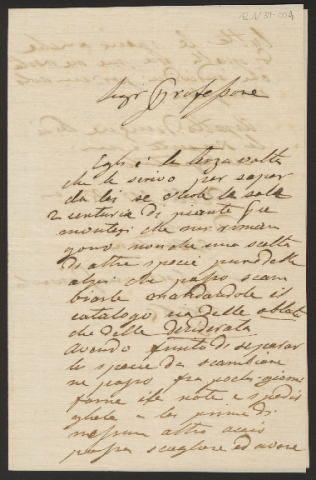 Sigr Professore
Egli è la terza volta
che le scrivo per saper
da lei se vuole le sole
2 centurie di piante
che mi riman
gono una scelta
di altre specie pure delle
alpi che posso scam
biarle mandandole il
catalogo sia delle oblata
che delle desiderata
Avendo finito di separar
le specie da scambiare
ne posso fra pochi giorni
farne le note e spedir
gliele a lei prima di
nessun altro acciò
possa scegliere ed avere